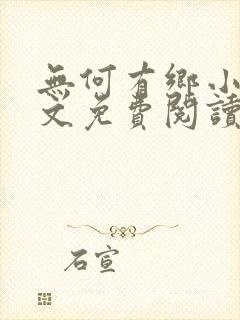 無何有鄉小
文免費閱讀
石宣